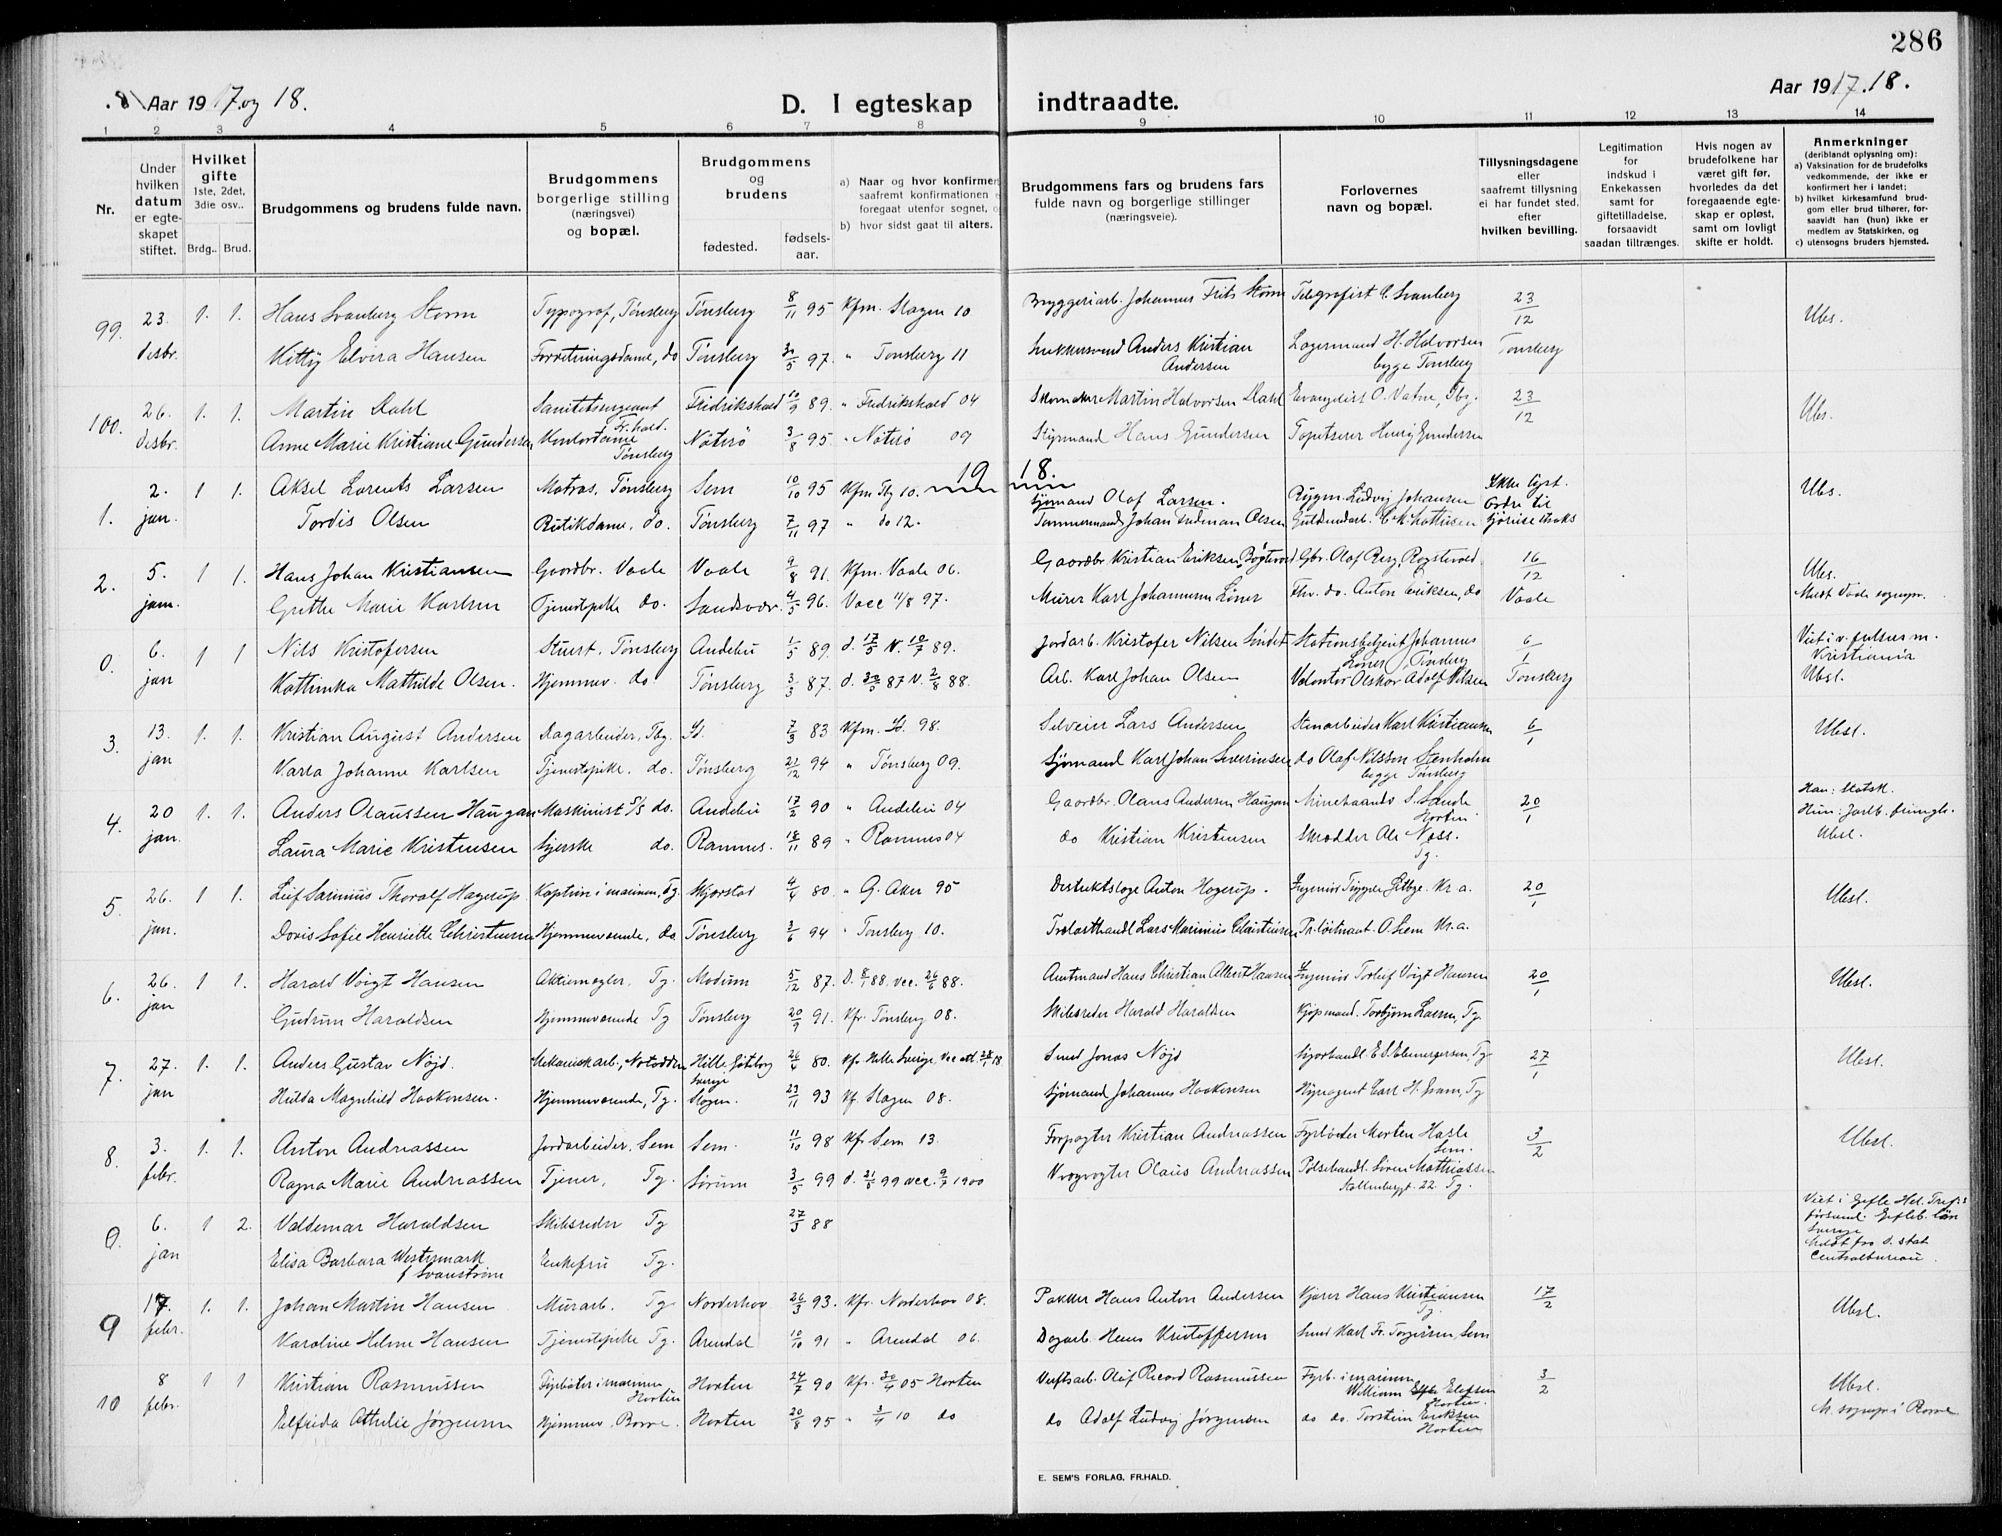 286
Aar 1917 og 18.
D. I egteskap indtraadte.
Aar 1917.18.
1 2 3 4 5 6 7 8 9 10 11 12 13 14
Nr.
Under hvilken datum er egteskapet stiftet.
Hvilket gifte 1ste, 2det, 3die osv..
Brdg.. Brud.
Brudgommens og brudens fulde navn.
Brudgommens borgerlige stilling (næringsvei) og bopæl.
Brudgommens og brudens
fødested. fødselsaar.
a) Naar og hvor konfirmer
saafremt konfirmationen
foregaat utenfor sognet,
b) hvor sidst gaat til alters.
Brudgommens fars og brudens fars fulde navn og borgerlige stillinger (næringsveie).
Forlovernes navn og bopæl.
Tillysningsdagene eller saafremt tillysning ei har fundet sted, efter hvilken bevilling.
Legitimation for indskud i Enkekassen samt for giftetilladelse, forsaavidt saadan tiltrænges.
Hvis nogen av brudefolkene har været gift før, hvorledes da det foregaaende egteskap er opløst, samt om lovligt skifte er holdt.
Anmerkninger
(deriblandt oplysning om):
a) Vaksination for de brudefolks vedkommende, der ikke er konfirmert her i landet;
b) hvilket kirkesamfund brudgom eller brud tilhører, forsaavidt han (hun) ikke er medlem av Statskirken, og
c) utensogns bruders hjemsted.
99. 23. desbr. 1. 1. Hans Svanberg Storm Typograf, Tønsberg Tønsberg 8/11 95 Kfm. Slagen 10 Bryggeriarb. Johannes Frits Storm Telegrafist C. Svanberg 23/12 Ubs.
Kitty Elvira Hansen Forretningsdame, do Tønsberg 30/5 97. " Tønsberg 11 Anders Kristian Andersen Lagermand H. Halvorsen begge Tønsberg Tønsberg
100. 26. desbr. 1. 1. Martin Dahl Sanitetsergeant Fr.hald. Fredrikshald 10/9 89. " Fredrikshald 04 Skomaker Martin Halvorsen Dahl Evangelist O. Vatne, Tbg. 23/12 Ubs.
Anne Marie Kristiane Gundersen Kontordame Tønsberg Nøterø 3/8 95. " Nøterø 09 Styrmand Hans Gundersen Tapetserer Henry Gundersen
1918.
1. 2. jan. 1 1. Aksel Lorents Larsen Matros, Tønsberg Sem 10/10 95 Kfm Tbg 10. Sjømand Olaf Larsen. Bygm. Ludvig Johansen Ikke lyst. Ubs.
Tordis Olsen Butikdame, do. Tønsberg 7/11 97 " do 12. Tømmermand Johan Fredman Olsen
2. 5. jan. 1 1. Hans Johan Kristiansen Gaardbr. Vaale Vaale 9/8 91. Kfm. Vaale 06. Gaardbr Kristian Eriksen 16/12 Ubs.
Grethe Marie Karlsen Tjenestepike do. Sandsvær. 4/5 96. Vacc 11/8 97. Murer Karl Johannesen Anton Eriksen, do Vaale
0. 6. jan 1 1 Nils Kristofersen Stuert, Tønsberg Andebu 1/5 89. d. 17/5 V. 10/7 89. Jordarb. Kristofer Nilsen Stationsbetjent Johannes Tønsberg 6/1 Kristiania
Kathinka Mathilde Olsen. Hjemmev. do Tønsberg 3/3 87. Arb. Karl Johan Olsen Tønsberg Ubsl.
3. 13. jan 1. 1. Kristian August Andersen Dagarbeider, Tbg. 7/3 83 98. Selveier Lars Andersen Stenarbeider Karl Kristiansen 6/1 Ubsl.
Karla Johanne Karlsen Tjenestepike. do. Tønsberg 21/12 94 " Tønsberg 09. Sjømand Karl Johan Severinsen do Olaf Nilsson Stenholm begge Tønsberg
4. 20 jan. 1. 1. Anders Olaussen Haugan Maskinist S/S do. Andebu 17/2 90 " Andebu 04 Gaardbr. Olaus Andersen Haugan S. Sande Horten 20/1 Han: Statsk.
Laura Marie Kristensen do. Ramnes. 18/11 89 " Ramnes 04 do Kristian Kristensen Skrædder Ole Næss. Tg. Ubsl.
5. 26. jan. 1 1. Leif Thoralf Hagerup Kaptein i marinen, Tg. Skjørstad 4/4 80. " G. Aker 95 Distriktslæge Anton Hagerup. 20/1 Ubsl.
Doris Sofie Henriette Christensen Hjemmeværende, do Tønsberg 3/6 94 " Tønsberg 10. Trælasthandl Lars Marinius Christensen Pr.løitnant O. Lem Kr.a.
6. 26 jan 1 1. Harald Voigt Hansen Aktiemegler, Tg. Modum 5/12 87. D. 8/1 88 vac. 26/6 88. Amtmand Hans Christian Albert Hansen Ingeniør Torleif Voigt Hansen 20/1 Ubsl.
Gudrun Haraldsen Hjemmeværende Tg Tønsberg 20/9 91. Kfr. Tønsberg 08. Skibsreder Harald Haraldsen Kjøpmand. Torbjørn Larsen, Tg.
7. 27. jan 1. 1. Anders Gustav Nöjd. Mekanisk arb., Notodden Hille, Sverge 26/4 80. Smed Jonas Nöjd 27/1 Ubsl.
Hulda Magnhild Haakensen. Hjemmeværende, Tg. Slagen. 23/11 93 Kf. Slagen 08. Sjømand Johannes Haakensen
8. 3. febr. 1. 1. Anton Andreassen Jordarbeider, Sem Sem. 11/10 98 Kfr Sem 13. Forpagter Kristian Andreassen Fyrbøter Morten Hasle Sem. 3/2 Ubsl.
Ragna Marie Andreassen Tjener, Tg. Sørum 3/5 99 d. 21/5 99 vac. 9/7 1900 Olaus Andreassen Pølsehandl. Søren Mathiassen 22 Tg.
0. 6. jan 1 2. Valdemar Haraldsen Skibsreder Tg 27/3 88 Viet i Gefle
Elisa Barbara Westermark f Svanström Enkefru Tg. Centralbureau.
9 17. febr. 1. 1. Johan Martin Hansen Murarb. Tg Norderhov 26/3 93. Kfr. Norderhov 08. Pakker Hans Anton Andersen Kjører Hans Kristiansen Tg. 17/2 Ubsl.
Karoline Helene Hansen Tjenestepike Tg. Arendal 10/10 91 " Arendal 06. Dagarb. Hans Kristoffersen Smed Karl Fr. Torgersen, Sem
10 8 febr. 1 1 Kristian Rasmussen Fyrbøter i marinen Horten Horten 24/7 90 Kfr. 30/4 05 Horten Verftsarb. Olaf Ricard Rasmussen Fyrb. i marinen William Elefsen Horten. 3/2 Ubsl.
Elfrida Athalie Jørgensen Hjemmev. Borre. Horten 20/8 95 " 3/4 10 do do Adolf Ludvig Jørgensen do do. Torstein Eriksen Horten
E. SEM'S FORLAG, FR.HALD.